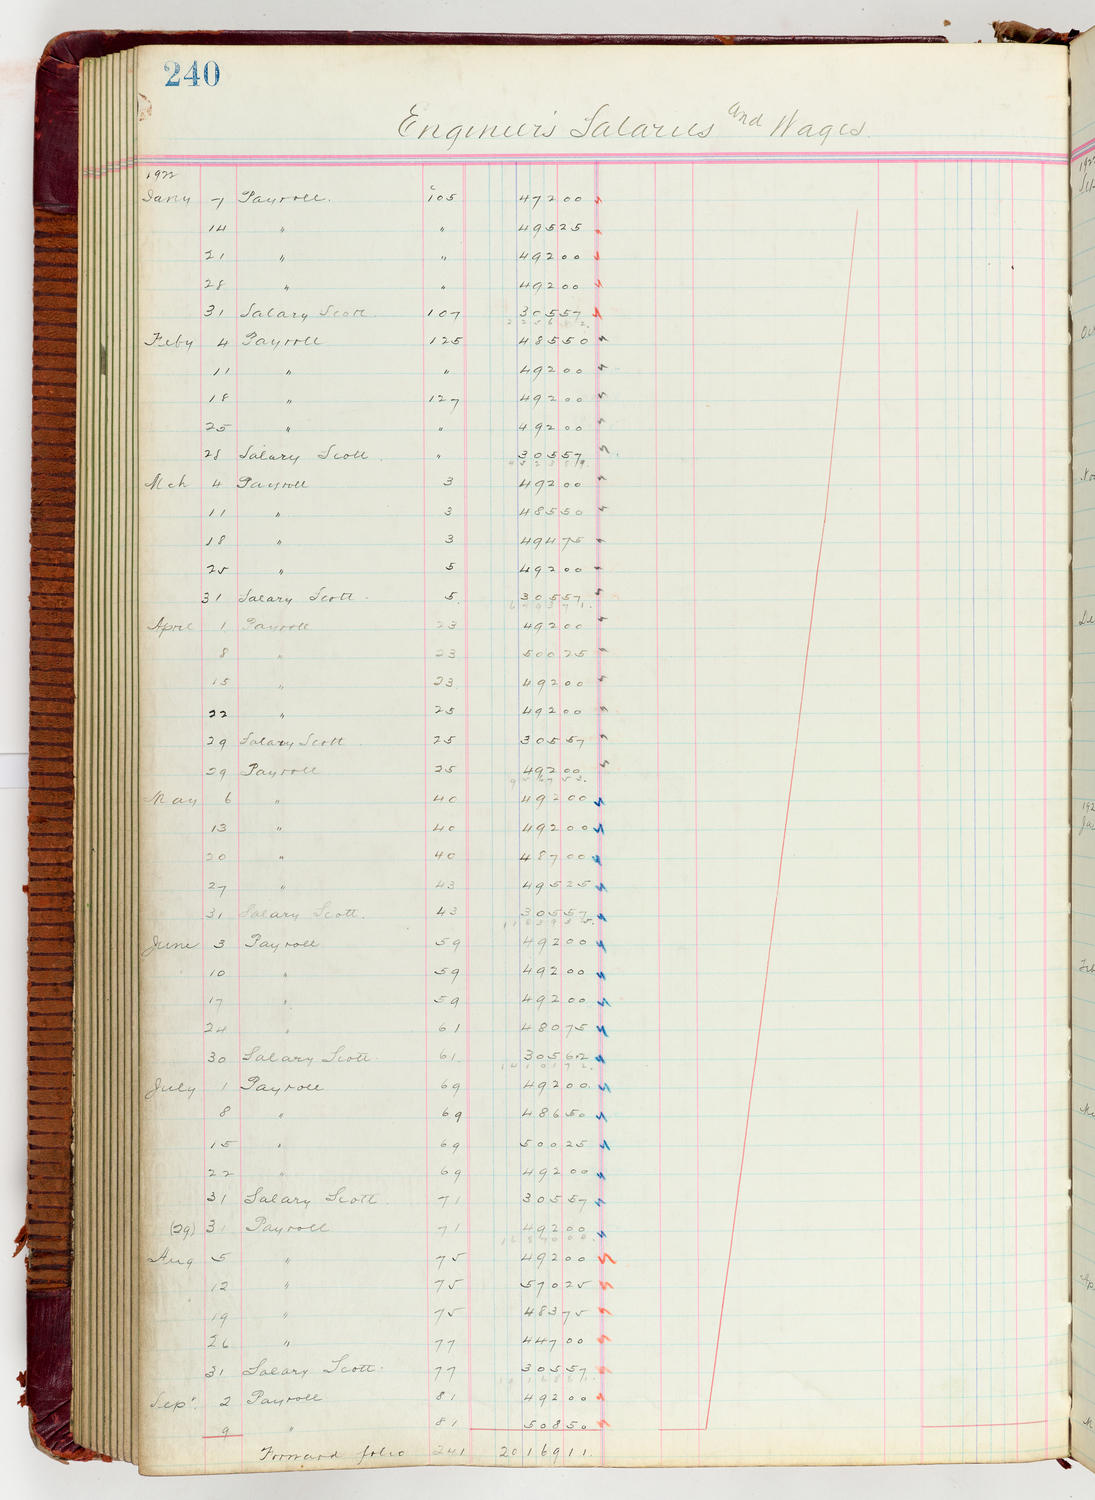 240
Engineers Salaries and Wages
1922
Jany 7 Payroll. c 105 472 00
14 " " 495 25
21 " " 492 00
28 " " 492 00
31 Salary Scott. 107 305 57
2256 82.
Feby 4 Payroll 125 485 50
11 " " 492 00
18 " 127 492 00
25 " " 492 00
28 Salary Scott. " 305 57
4523 89.
Mch 4 Payroll 3 492 00
11 " 3 485 50
18 " 3 494 75
25 " 5 492 00
31 Salary Scott. 5. 305 57
6793 71.
April 1 Payroll 23 492 00
8 " 23 500 25
15 " 23 492 00
22 " 25 492 00
29 Salary Scott 25 305 57
29 Payroll 25 492 00
9567 53.
May 6 " 40 492 00
13 " 40 492 00
20 " 40 487 00
27 " 43 495 25
31 Salary Scott. 43 305 57
11839 35.
June 3 Payroll 59 492 00
10 " 59 492 00
17 " 59 492 00
24 " 61 480 75
30 Salary Scott. 61. 305 62
14101 72.
July 1 Payroll 69 492 00
8 " 69 486 50
15 " 69 500 25
22 " 69 492 00
31 Salary Scott. 71 305 57
(29) 31 Payroll 71 492 00
16870 04.
Aug 5 " 75 492 00
12 " 75 570 25
19 " 75 483 75
26 " 77 447 00
31 Salary Scott. 77 305 57
Sepr. 2 Payroll 81 492 00
9 " 81 508 50
Forward folio 241 20169 11.